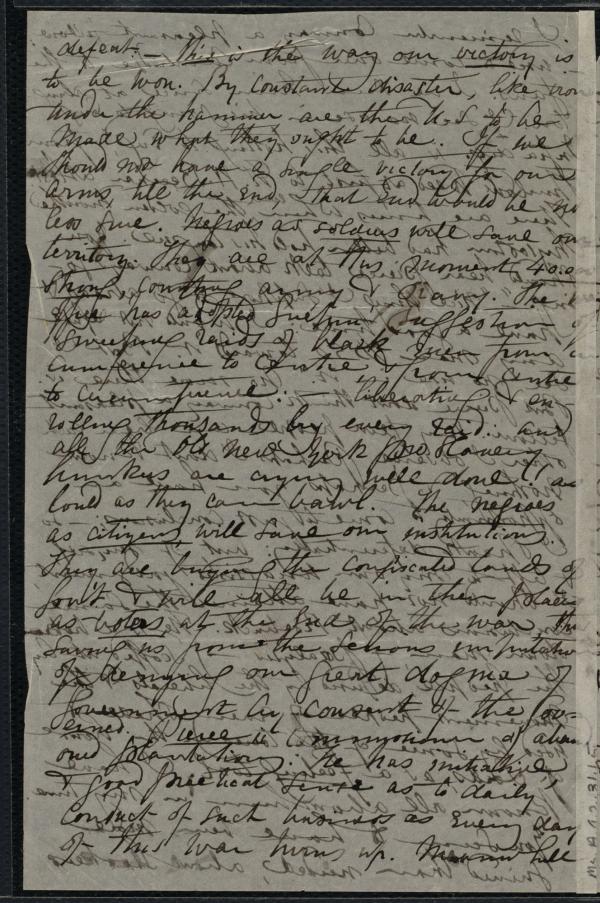 defeat. — This is the way our victory is
to be won. By constant disaster, like iron
under the hammer are the U.S. to be
made what they ought to be. If we
should not have a single victory for our
arms, till the end, that end would be no
less sure. Negroes as soldiers will save our
territory. They are at this moment 40.0
strong, counting army & Navy. The
has adopted suggestion of
sweeping raids of black men from
cumference to centre & from centre
to circumference: — liberating & en-
rolling thousands by every raid: and
all the old New York pro Slavery
hunkers are crying well done! as
loud as they can bawl. The negroes
as citizens will save our institutions.
They are buying the confiscated lands of
Gov't & will all be in their places
as voters, at the End of the war, thus
saving us from the serious imputation
of denying our great dogma of
Government by consent of the gov-
erned. Pierce is Commissioner of aban
oned plantations. He has initiative,
& good practical sense as to daily
conduct of such business as every day
of this war turns up. Meanwhile